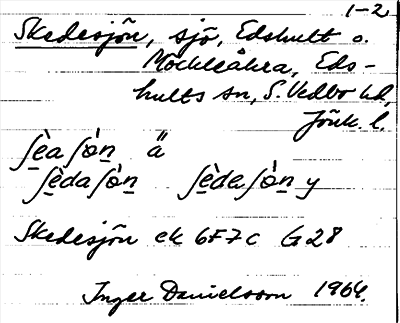 1-2
Skedesjön, sjö, Edshult o.
Möckleåkra, Eds-
hults sn, S. Vedbo hd,
Jönk. l.
ʃèa ʃȯ̀n ä
ʃèda ʃȯ̀n ʃède ʃȯ̀n y
Skedesjön ek 6F7c G28
Inger Danielsson 1964.